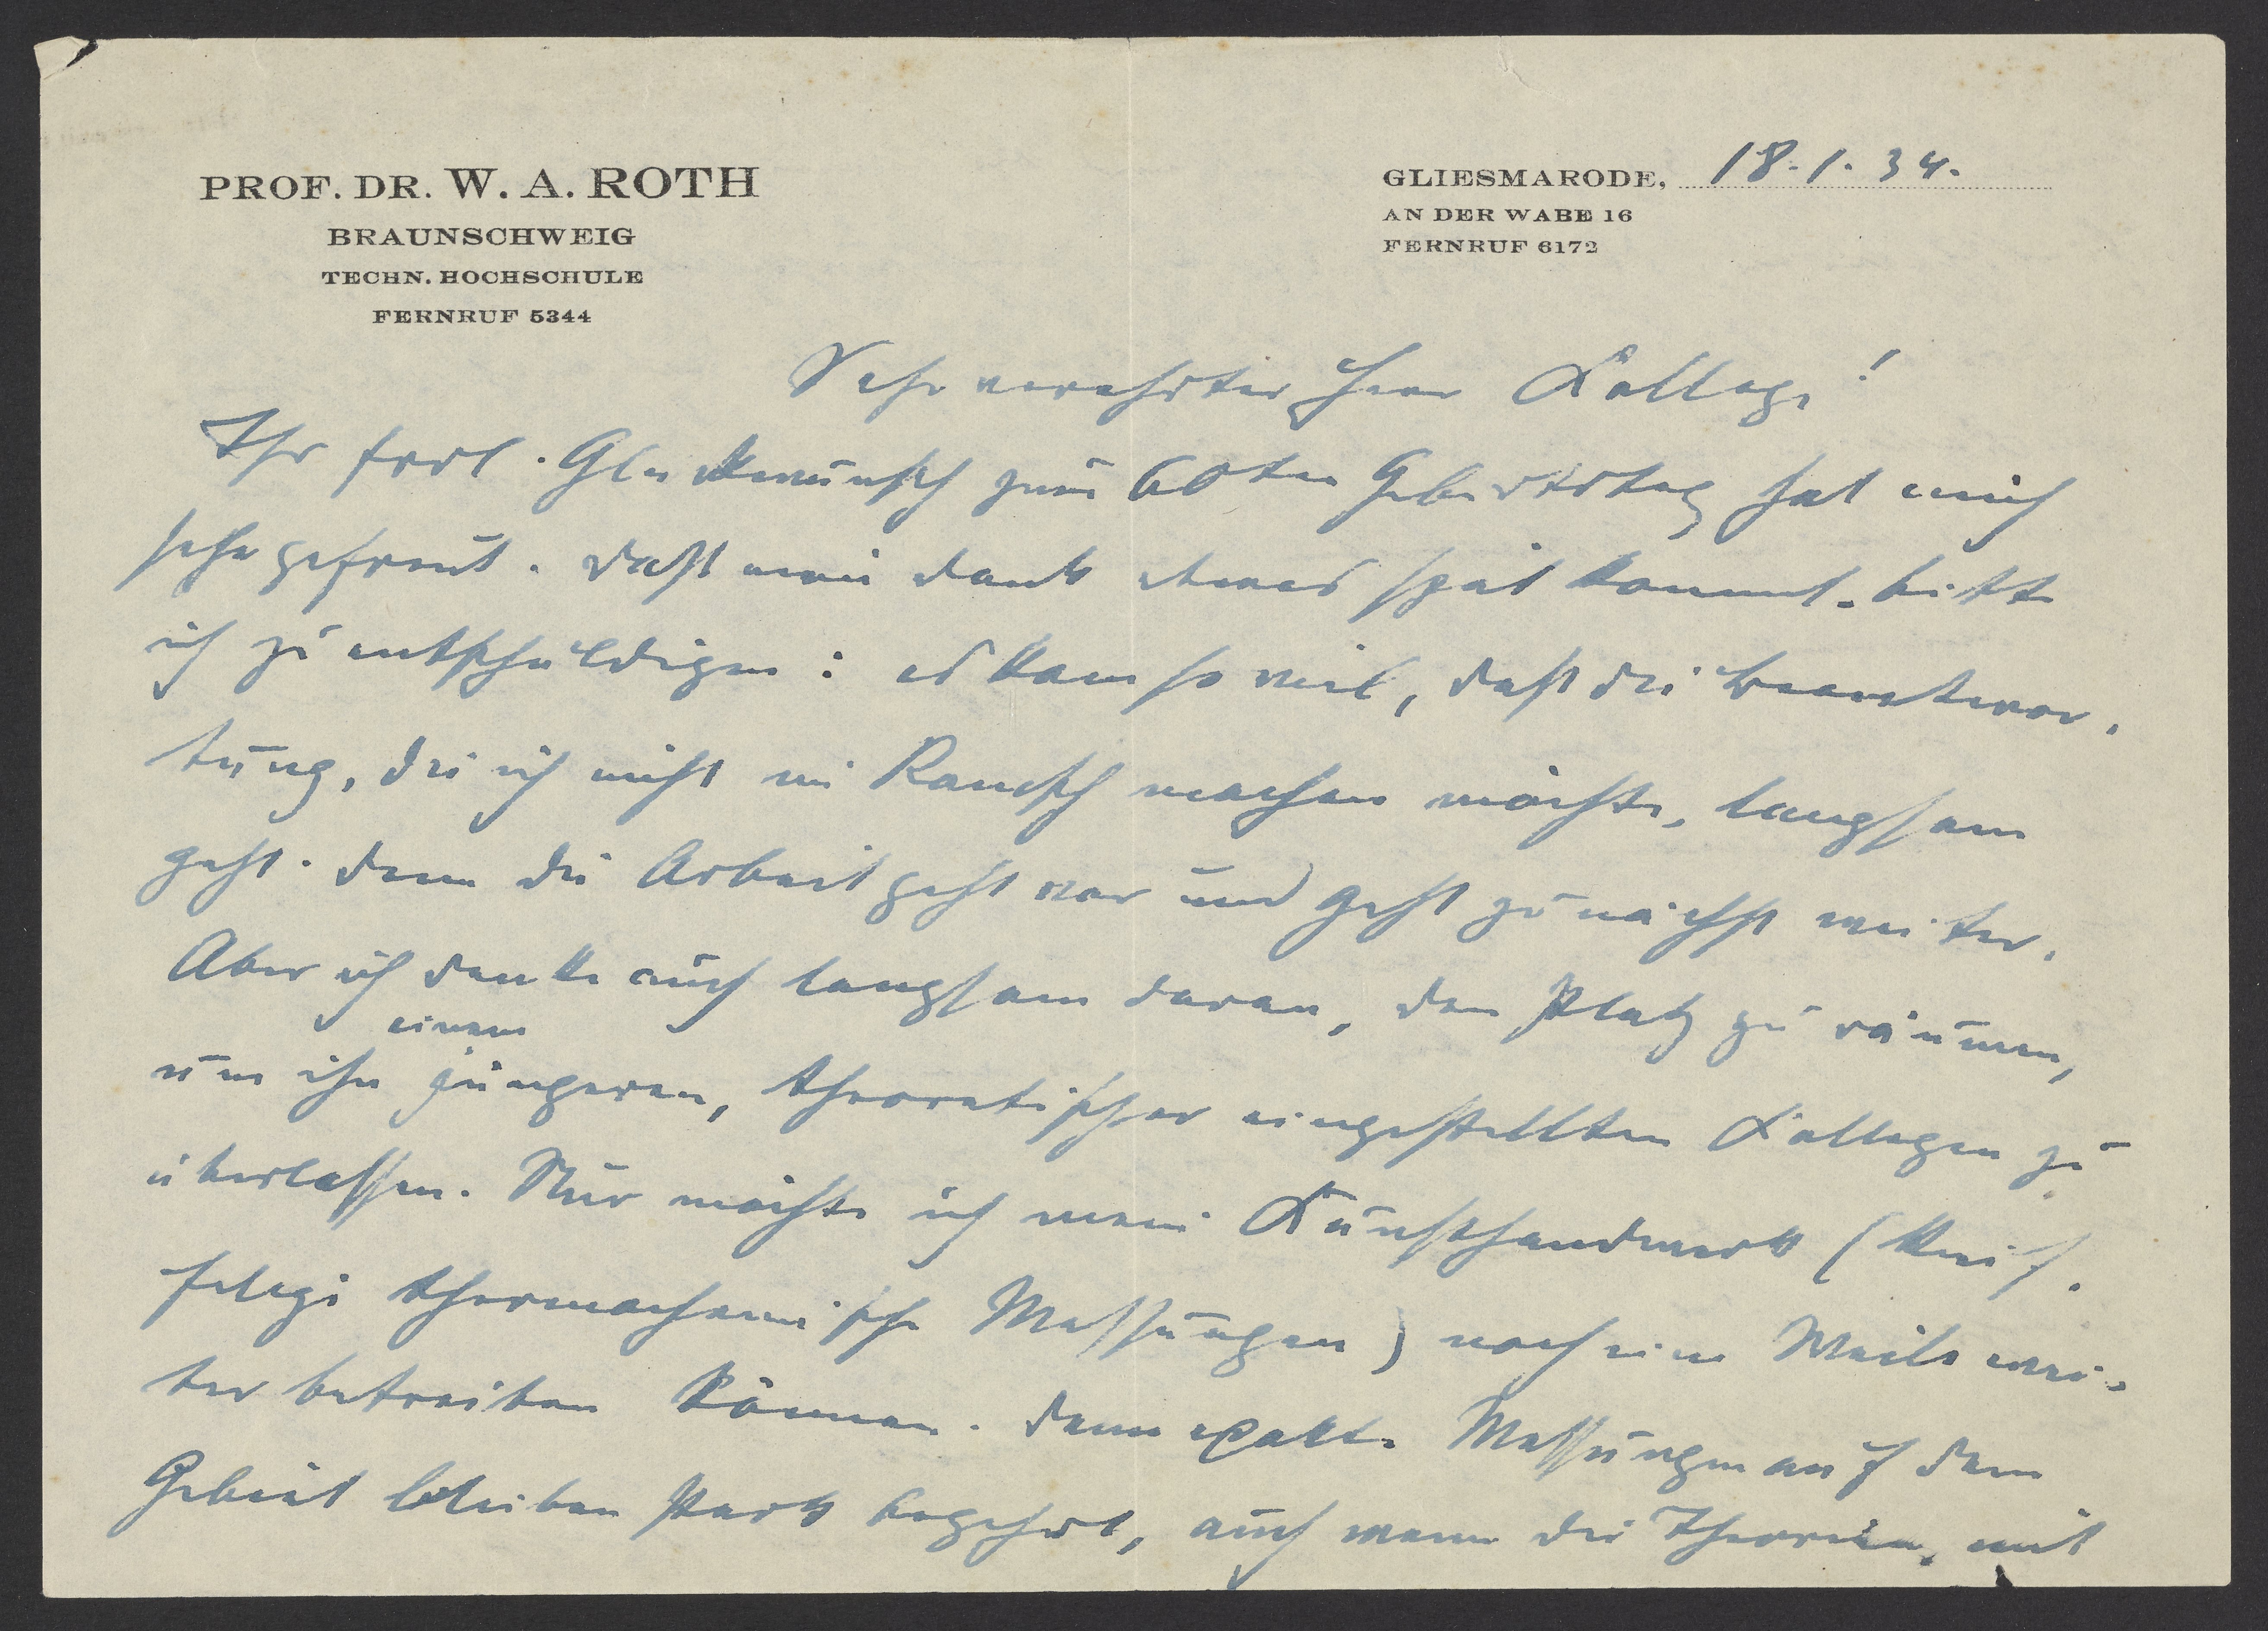 PROF. DR. W. A. ROTH
BRAUNSCHWEIG
TECHN. HOCHSCHULE
FERNRUF 5344
GLIESMARODE, 18.1.34.
AN DER WABE 16
FERNRUF 6172
Sehr verehrter Herr Kollege!
Ihr frdl. Glückwunsch zum 60ten Geburtstag hat mich
sehr gefreut. Daß mein Dank etwas spät kommt, bitte
ich zu entschuldigen: es kam so viel, daß die Beantwor-
tung, die ich nicht im Ramsch machen möchte, langsam
geht. Denn die Arbeit geht vor und geht zunächst weiter.
Aber ich denke auch langsam daran, den Platz zu räumen,
um ihn einem jüngeren, theoretischer eingestellten Kollegen zu
überlassen. Nur möchte ich mein Kunsthandwerk (
thermochemische Messungen) noch eine Weile wei-
ter betreiben können. Denn exakte Messungen auf dem
Gebiet bleiben stark begehrt, auch wenn die Theorien, mit